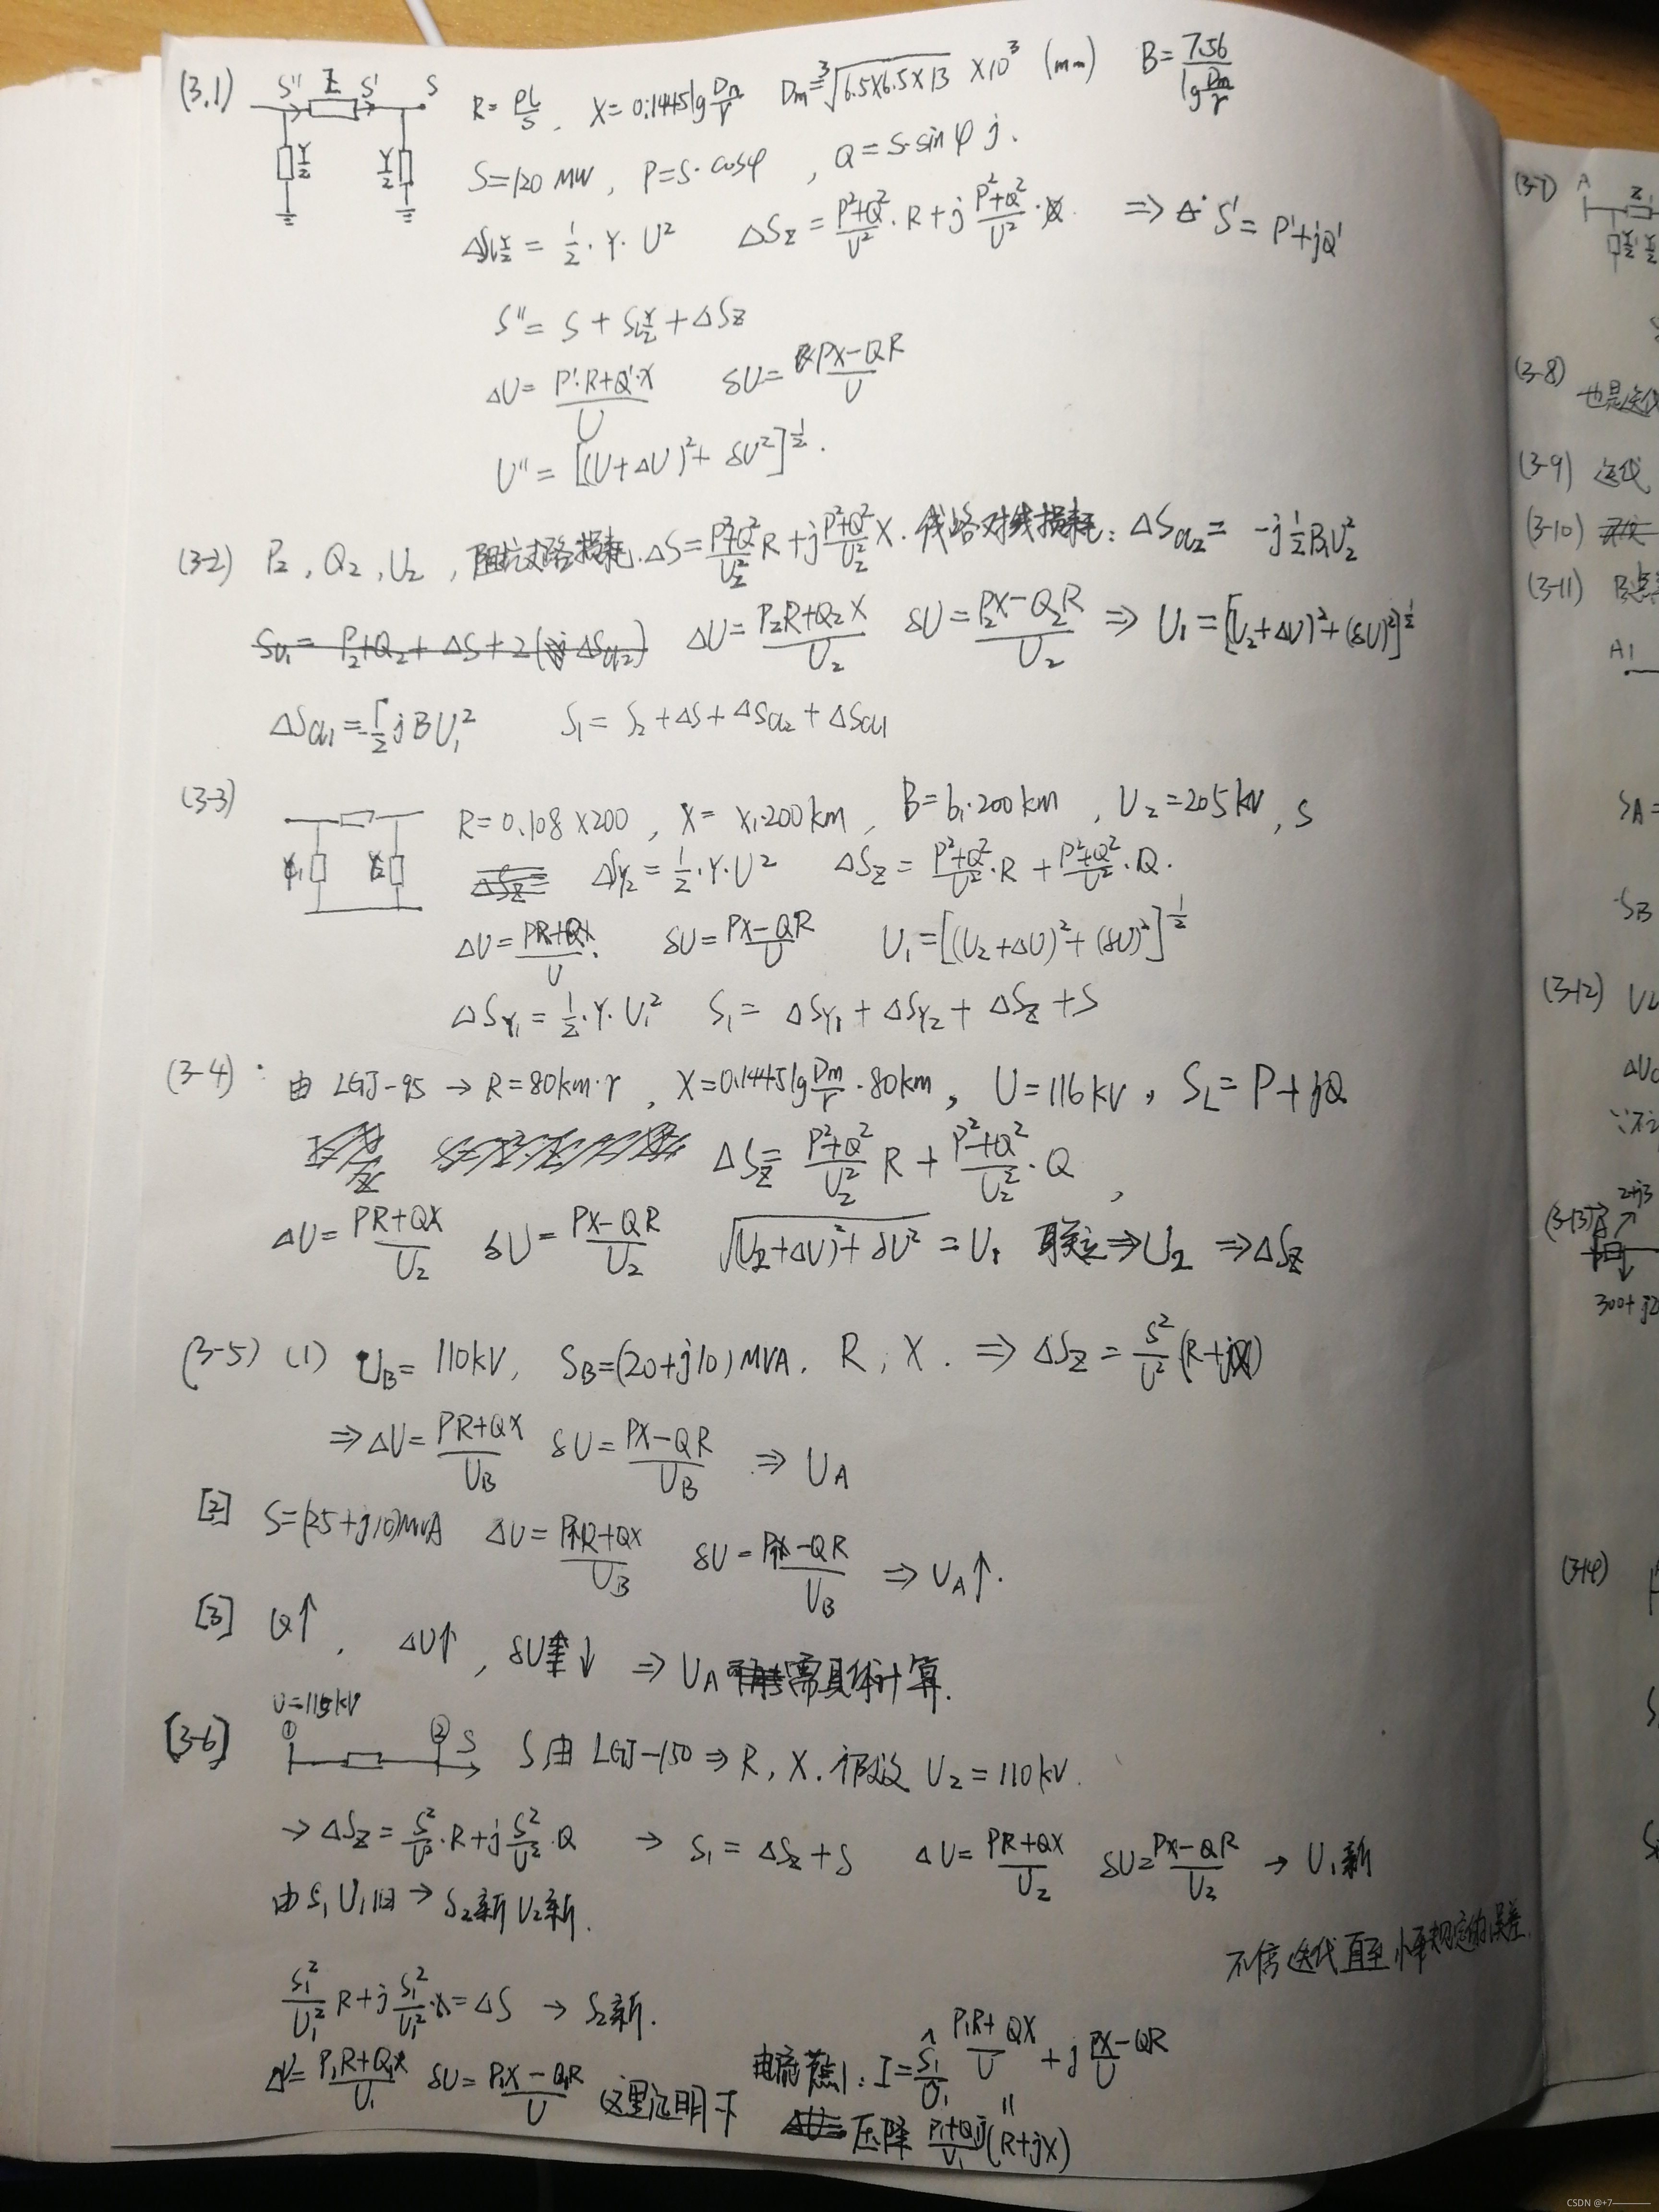 (3.1) S'' Z S' S R=ρL/S , X=0.1445lg Dm/r Dm=³√(6.5×6.5×13) ×10³ (mm) B=7.56/(lg Dm/r)
Y/2 Y/2
S=120 MW , P=S·cosφ , Q=S·sinφ j.
ΔS_{Y/2} = 1/2·Y·U² ΔS_Z = (P²+Q²)/U²·R+j (P²+Q²)/U²·X ⇒ S'=P'+jQ'
S''= S + S_{Y/2} + ΔS_Z
ΔU= (P'·R+Q'·X)/U δU= (PX-QR)/U
U''= [(U+ΔU)²+ δU²]^{1/2}.
(3-2) P₂, Q₂, U₂, 阻抗支路损耗. ΔS=(P²+Q²)/U₂² R+j(P²+Q²)/U₂² X. 线路对 损耗: ΔS_{α2}= -j 1/2 B₁U₂²
ΔU=(P₂R+Q₂X)/U₂ δU=(P₂X-Q₂R)/U₂ ⇒ U₁=[(U₂+ΔU)²+(δU)²]^{1/2}
ΔS_{α1}=-1/2 jBU₁² S₁= S₂+ΔS+ΔS_{α2}+ΔS_{α1}
(3-3) R=0.108×200 , X= x₁·200km , B=b₁·200km , U₂=205kV , S
ΔS_{Y2}=1/2·Y·U² ΔS_Z= (P²+Q²)/U²·R + (P²+Q²)/U²·Q.
ΔU=(PR+QX)/U. δU=(PX-QR)/U U₁=[(U₂+ΔU)²+(δU)²]^{1/2}
ΔS_{Y1}=1/2·Y·U₁² S₁= ΔS_{Y1}+ΔS_{Y2}+ΔS_Z+S
(3-4) 由 LGJ-95 → R=80km·r , X=0.1445lg Dm/r·80km , U=116kV , S_L=P+jQ
ΔS_Z= (P²+Q²)/U₂² R + (P²+Q²)/U₂²·Q ,
ΔU=(PR+QX)/U₂ δU=(PX-QR)/U₂ √((U₂+ΔU)²+δU²)=U₁ 联立⇒U₂ ⇒ΔS_Z
(3-5) (1) U_B= 110kV, S_B=(20+j10)MVA. R, X. ⇒ ΔS_Z= S²/U²(R+jX)
⇒ΔU=(PR+QX)/U_B δU=(PX-QR)/U_B ⇒ U_A
[2] S=(25+j10)MVA ΔU=(P₁R+QX)/U_B δU=(P₁X-QR)/U_B ⇒ U_A↑.
[3] Q↑, ΔU↑, δU↓ ⇒ U_A 需具体计算.
[3-6] U=115kV ① ② S 由 LGJ-150 ⇒ R, X. 假设 U₂=110kV.
→ ΔS_Z= S²/U²·R+j S²/U²·Q → S₁= ΔS_Z+S ΔU=(PR+QX)/U₂ δU=(PX-QR)/U₂ → U₁新
由S₁ U₁旧→ S₂新 U₂新.
不停迭代直至小于规定的误差.
S₁²/U₁² R+j S₁²/U₁²·X=ΔS → S₂新.
ΔU=(P₁R+Q₁X)/U₁ δU=(P₁X-Q₁R)/U 这里证明一下
I=Ŝ₁/U₁ (P₁R+QX)/U+j(PX-QR)/U
压降 (P₁+Q₁j)/U₁ (R+jX)
(3-7) A
Z
(3-8)
也是
(3-9) 迭代
(3-10)
(3-11) B
A1
S_A=
S_B
(3-12) U₂
(3-13) A 2+j3
300+j2
(3-14)
CSDN @+7————